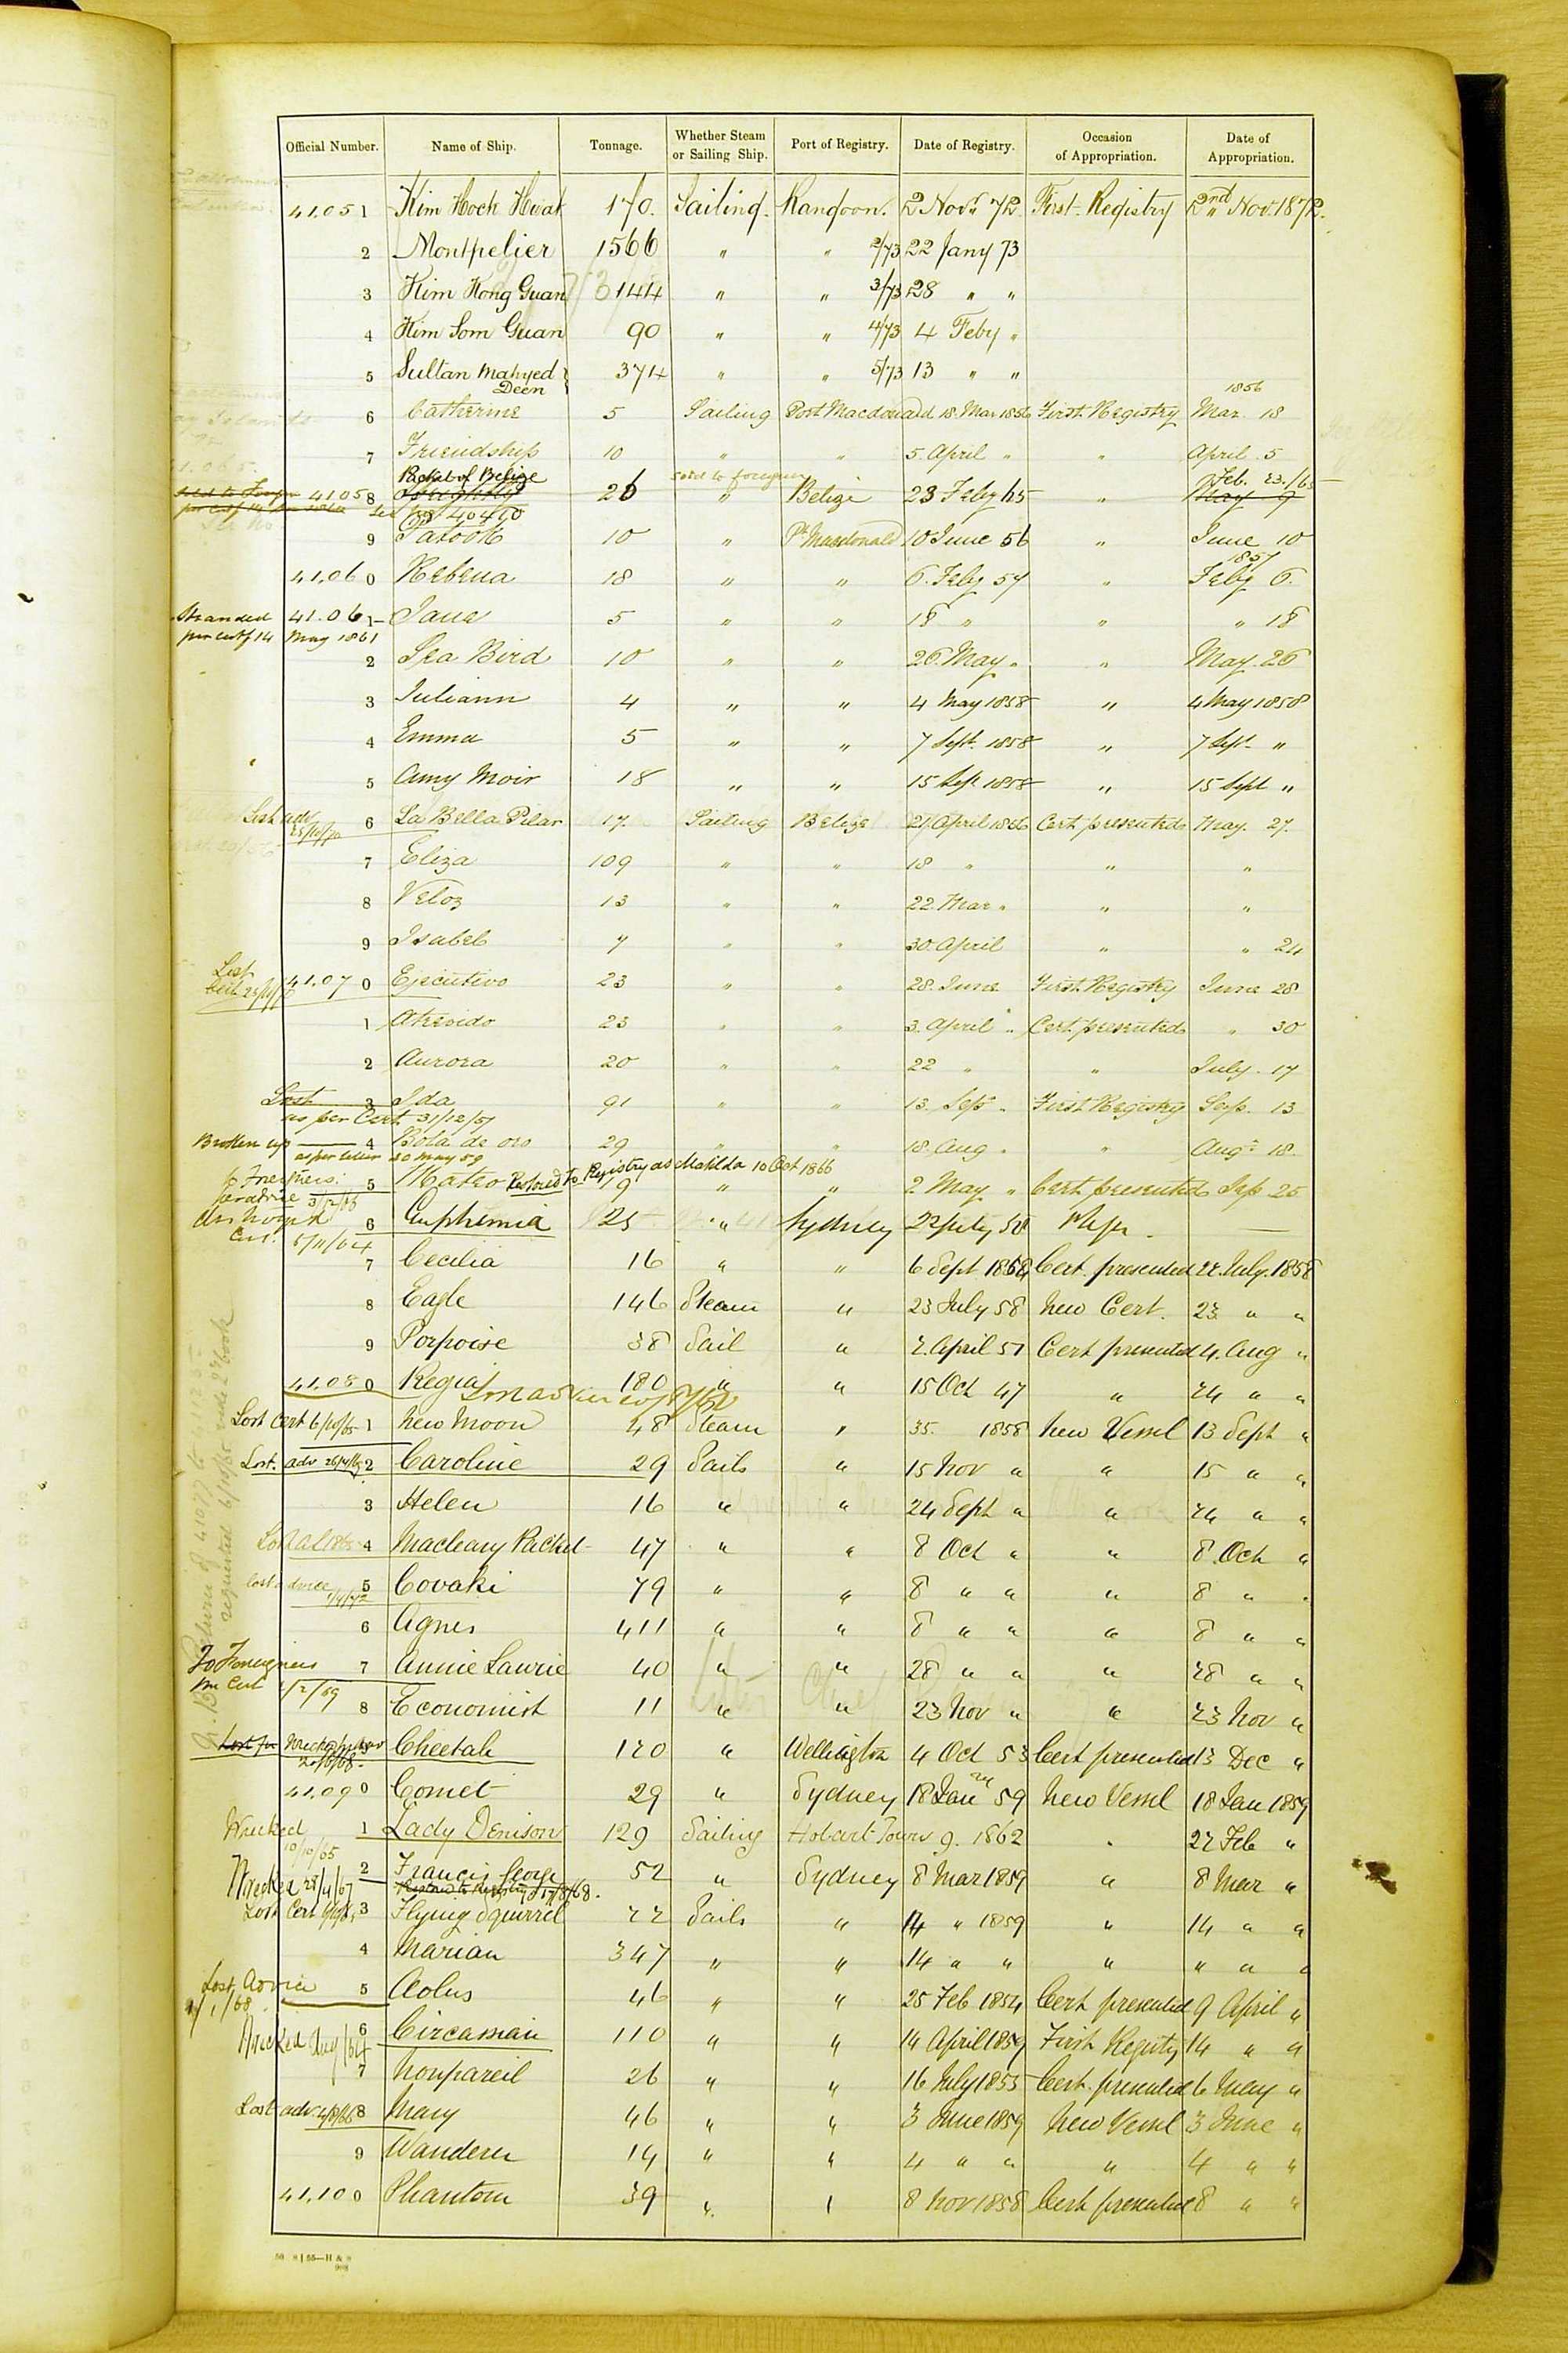 Official Number. Name of Ship. Tonnage. Whether Steam or Sailing Ship. Port of Registry. Date of Registry. Occasion of Appropriation. Date of Appropriation.
41.051 Kim Hock Hwat 170. Sailing. Rangoon. 2 Novr 72 First Registry 2nd Nov. 1872.
2 Montpelier 1566 " " 2/73 22 Jany 73
3 Kim Hong Guan 144 " " 3/73 28 " "
4 Kim Som Guan 90 " " 4/73 4 Feby "
5 Sultan Mahyed Deen 374 " " 5/73 13 " "
6 Catherine 5 Sailing Port Macdonald 18. Mar 1856 First Registry 1856 Mar 18
7 Friendship 10 " " 5. April " " April 5
sold to foreigners
41.058 Packet of Belize 26 " Belize 23 Feby 65 " Feb. 23./65
40410
9 Patook 10 " Pt Macdonald 10 June 56 " June 10
41.060 Rebena 18 " " 6. Feby 57 " 1857 Feby 6.
Stranded 41.061 Jane 5 " " 18 " " " 18
per certf 14 May 1861
2 Sea Bird 10 " " 26. May " " May. 26
3 Juliann 4 " " 4 May 1858 " 4 May 1858
4 Emma 5 " " 7 Sept. 1858 " 7 Sept "
5 Amy Moir 18 " " 15 Sep. 1858 " 15 Sept "
Lost adv 6 La Bella Pilar 17. Sailing Belize 21 April 1856 Cert presented May. 27.
7 Eliza 109 " " 18 " " "
8 Veloz 13 " " 22 Mar " " "
9 Isabel 7 " " 30. April " " 24
Lost 41.070 Ejecutivo 23 " " 28. June First Registry June 28
1 Atrevido 23 " " 3. April " Cert. presented " 30
2 Aurora 20 " " 22 " " July. 17
Lost 3 Ida 91 " " 13. Sep " First Registry Sep. 13
as per Cert 31/12/57
Broken up 4 Bola de oro 29 " " 18. Aug " " Augt 18
as per letter 20 May 59
to Foreigners 5 Mateo Restored to Registry as Matilda 10 Oct 1866 19 " " 2 May " Cert presented Sep 25
per advice 3/12/66
6 Euphemia 25 " Sydney 22 July 58
Cert. 5/11/64
7 Cecilia 16 " " 6 Sept Cert. presented 22. July. 1858
8 Eagle 146 Steam " 23 July 58 New Cert. 23 " "
9 Porpoise 38 Sail " 2. April 57 Cert presented 4. Aug "
41.080 Regia 180 " " 15 Oct 47 " 24 " "
Lost Cert 6/10/65 1 New Moon 48 Steam " 35. 1858 New Vessel 13 Sept "
Lost. adv 2 Caroline 29 Sails " 15 Nov " " 15 " "
3 Helen 16 " " 24 Sept " " 24 " "
4 Macleay Packet 47 " " 8 Oct " " 8 Oct "
Lost advice 5 Covaki 79 " " 8 " " " 8 " "
6 Agnes 411 " " 8 " " " 8 " "
To Foreigners 7 Annie Laurie 40 " " 28 " " " 28 " "
8 Economist 11 " " 23 Nov " " 23 Nov "
Wrecked Cheetah 120 " Wellington 4 Oct 53 Cert presented 13 Dec "
41.090 Comet 29 " Sydney 18 Jan 59 New Vessel 18 Jan 1859
Wrecked 1 Lady Denison 129 Sailing Hobart Town 9. 1862 " 22 Feb "
10/10/65
Wrecked 28/4/67 2 Francis George 52 " Sydney 8 Mar 1859 " 8 Mar "
Restored to Registry 17/8/68.
Lost Cert 3 Flying Squirrel 22 Sails " 14 " 1859 " 14 " "
4 Marian 347 " " 14 " " " " " "
Lost, Advice 5 Aolus 46 " " 25 Feb 1854 Cert presented 9 April "
Wrecked Aug/64 6 Circassian 110 " " 14 April 1859 First Registry 14 " "
7 Nonpareil 26 " " 16 July 1855 Cert. presented 6 May "
Lost adv 8 Mary 46 " " 3 June 1859 New Vessel 3 June "
9 Wanderer 14 " " 4 " " " 4 " "
41.100 Phantom 39 " " 8 Nov 1858 Cert presented 8 " "